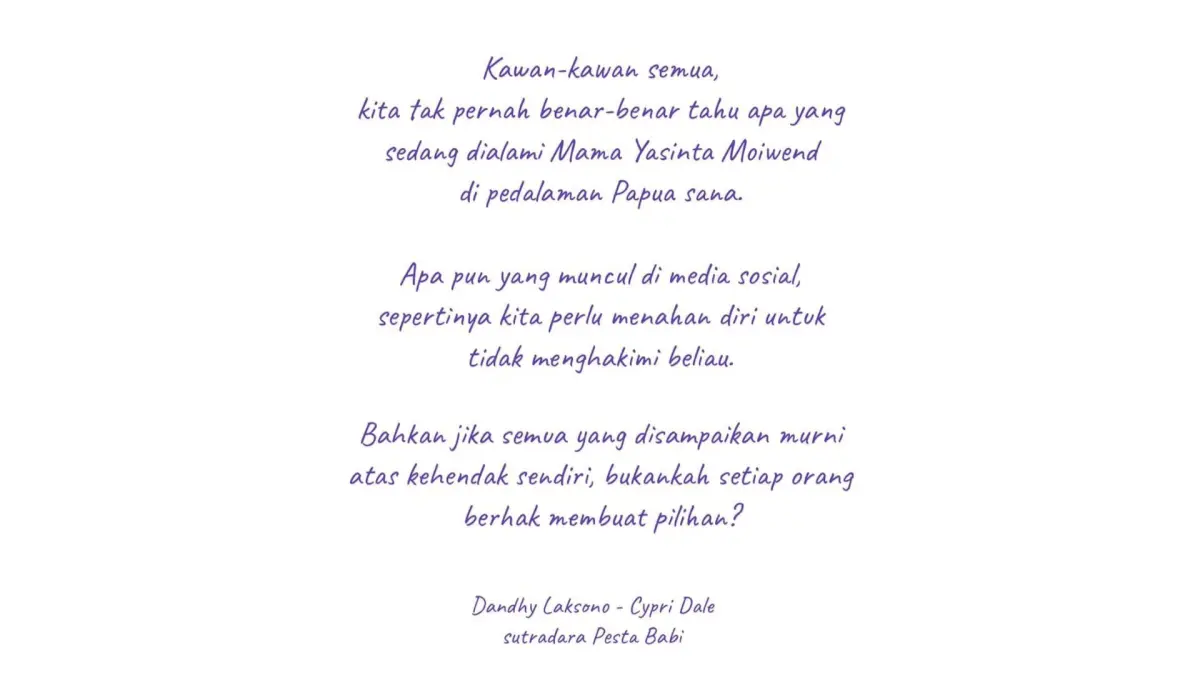 Kawan-kawan semua,
kita tak pernah benar-benar tahu apa yang
sedang dialami Mama Yasinta Moiwend
di pedalaman Papua sana.
Apa pun yang muncul di media sosial,
sepertinya kita perlu menahan diri untuk
tidak menghakimi beliau.
Bahkan jika semua yang disampaikan murni
atas kehendak sendiri, bukankah setiap orang
berhak membuat pilihan?
Dandhy Laksono - Cypri Dale
sutradara Pesta Babi